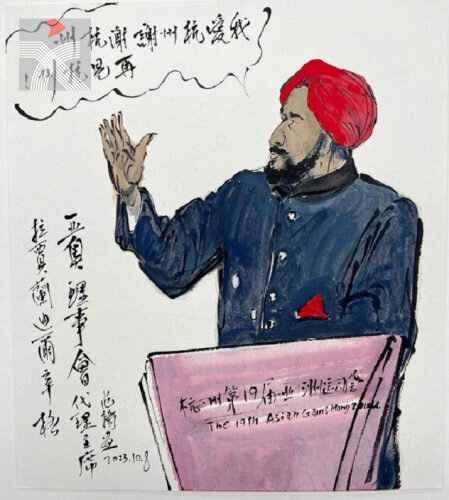 我愛杭州謝謝杭州
再見杭州!
亞奧理事會代理主席
拉賈蘭迪爾辛格
2023.10.8
杭州第19届亚洲运动会
The 19th Asian Games Hangzhou